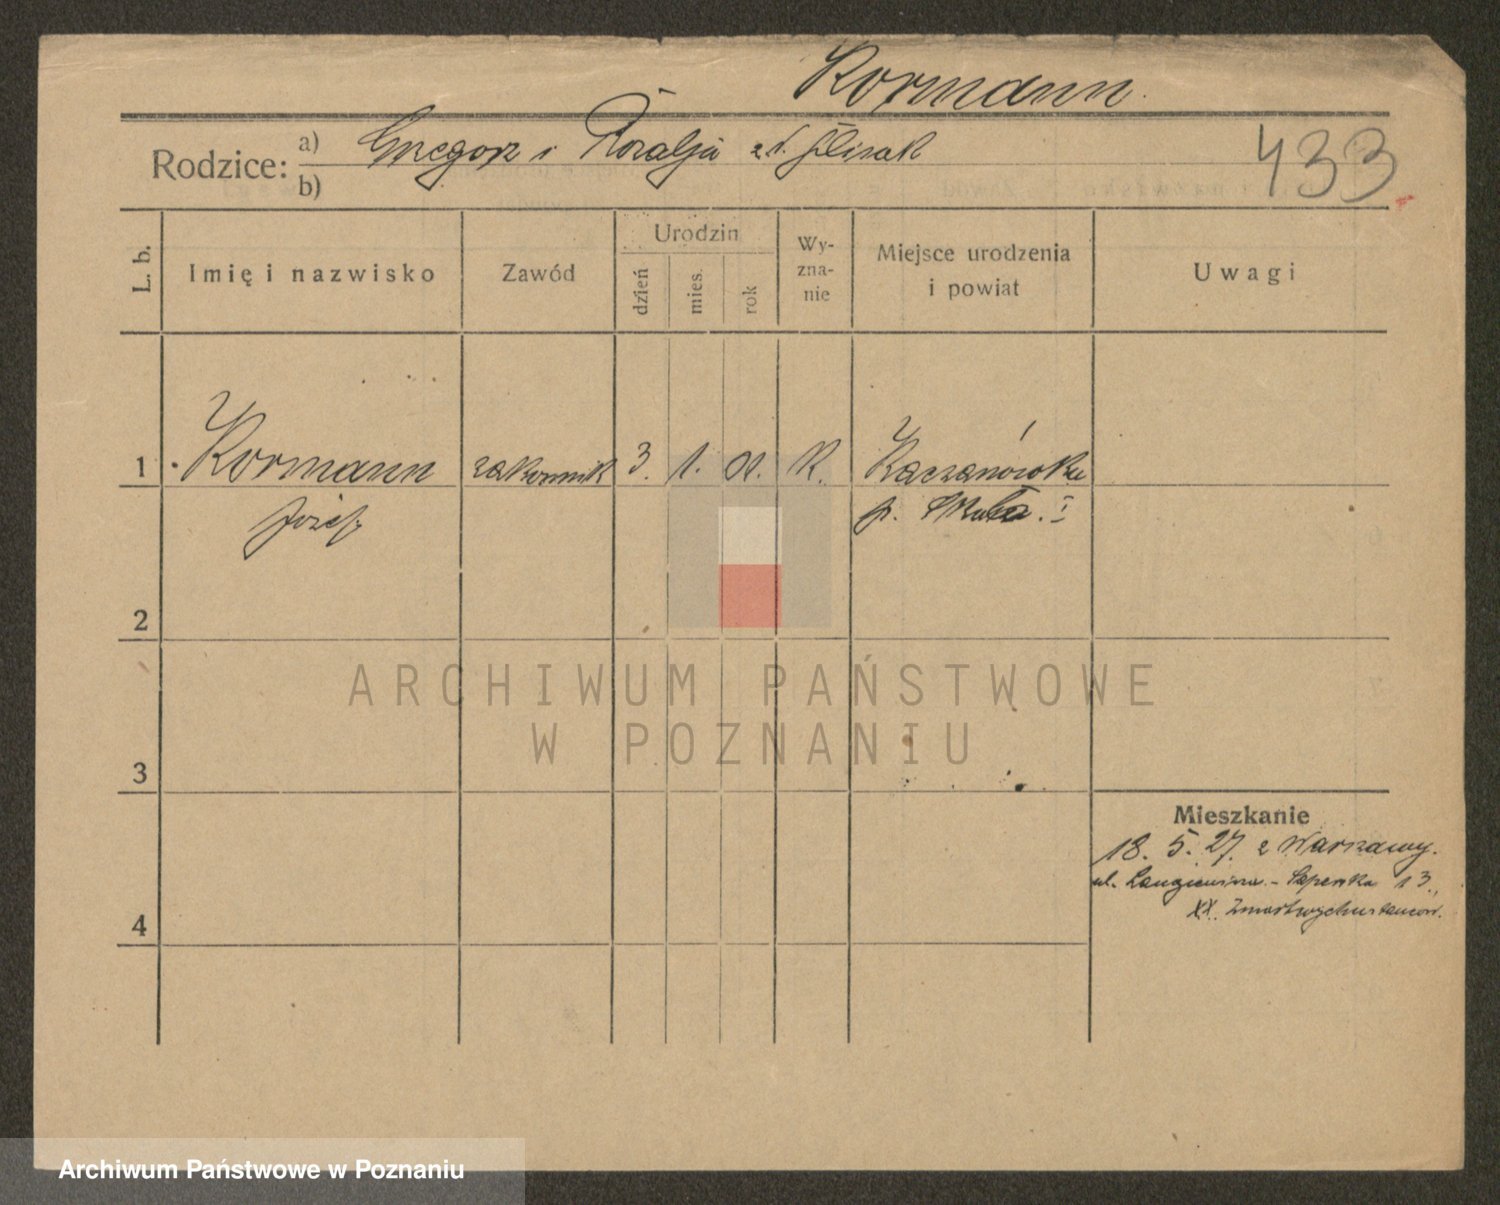 Kormann.
Rodzice:
a) Grzegorz i Rozalja z d.
b)
433
L. b.
Imię i nazwisko
Zawód
Urodzin
dzień
mies.
rok
Wy-
zna-
nie
Miejsce urodzenia
i powiat
Uwagi
1
Kormann
zakonnik
3. 1. 01.
K.
Kaczanówka
Józef
p. Skałat.
2
ARCHIWUM PAŃSTWOWE
W POZNANIU
3
Mieszkanie
18. 5. 27. z Warszawy.
ul. Langiewicza - 13.,
XX. Zmartwychwstańców.
4
Archiwum Państwowe w Poznaniu